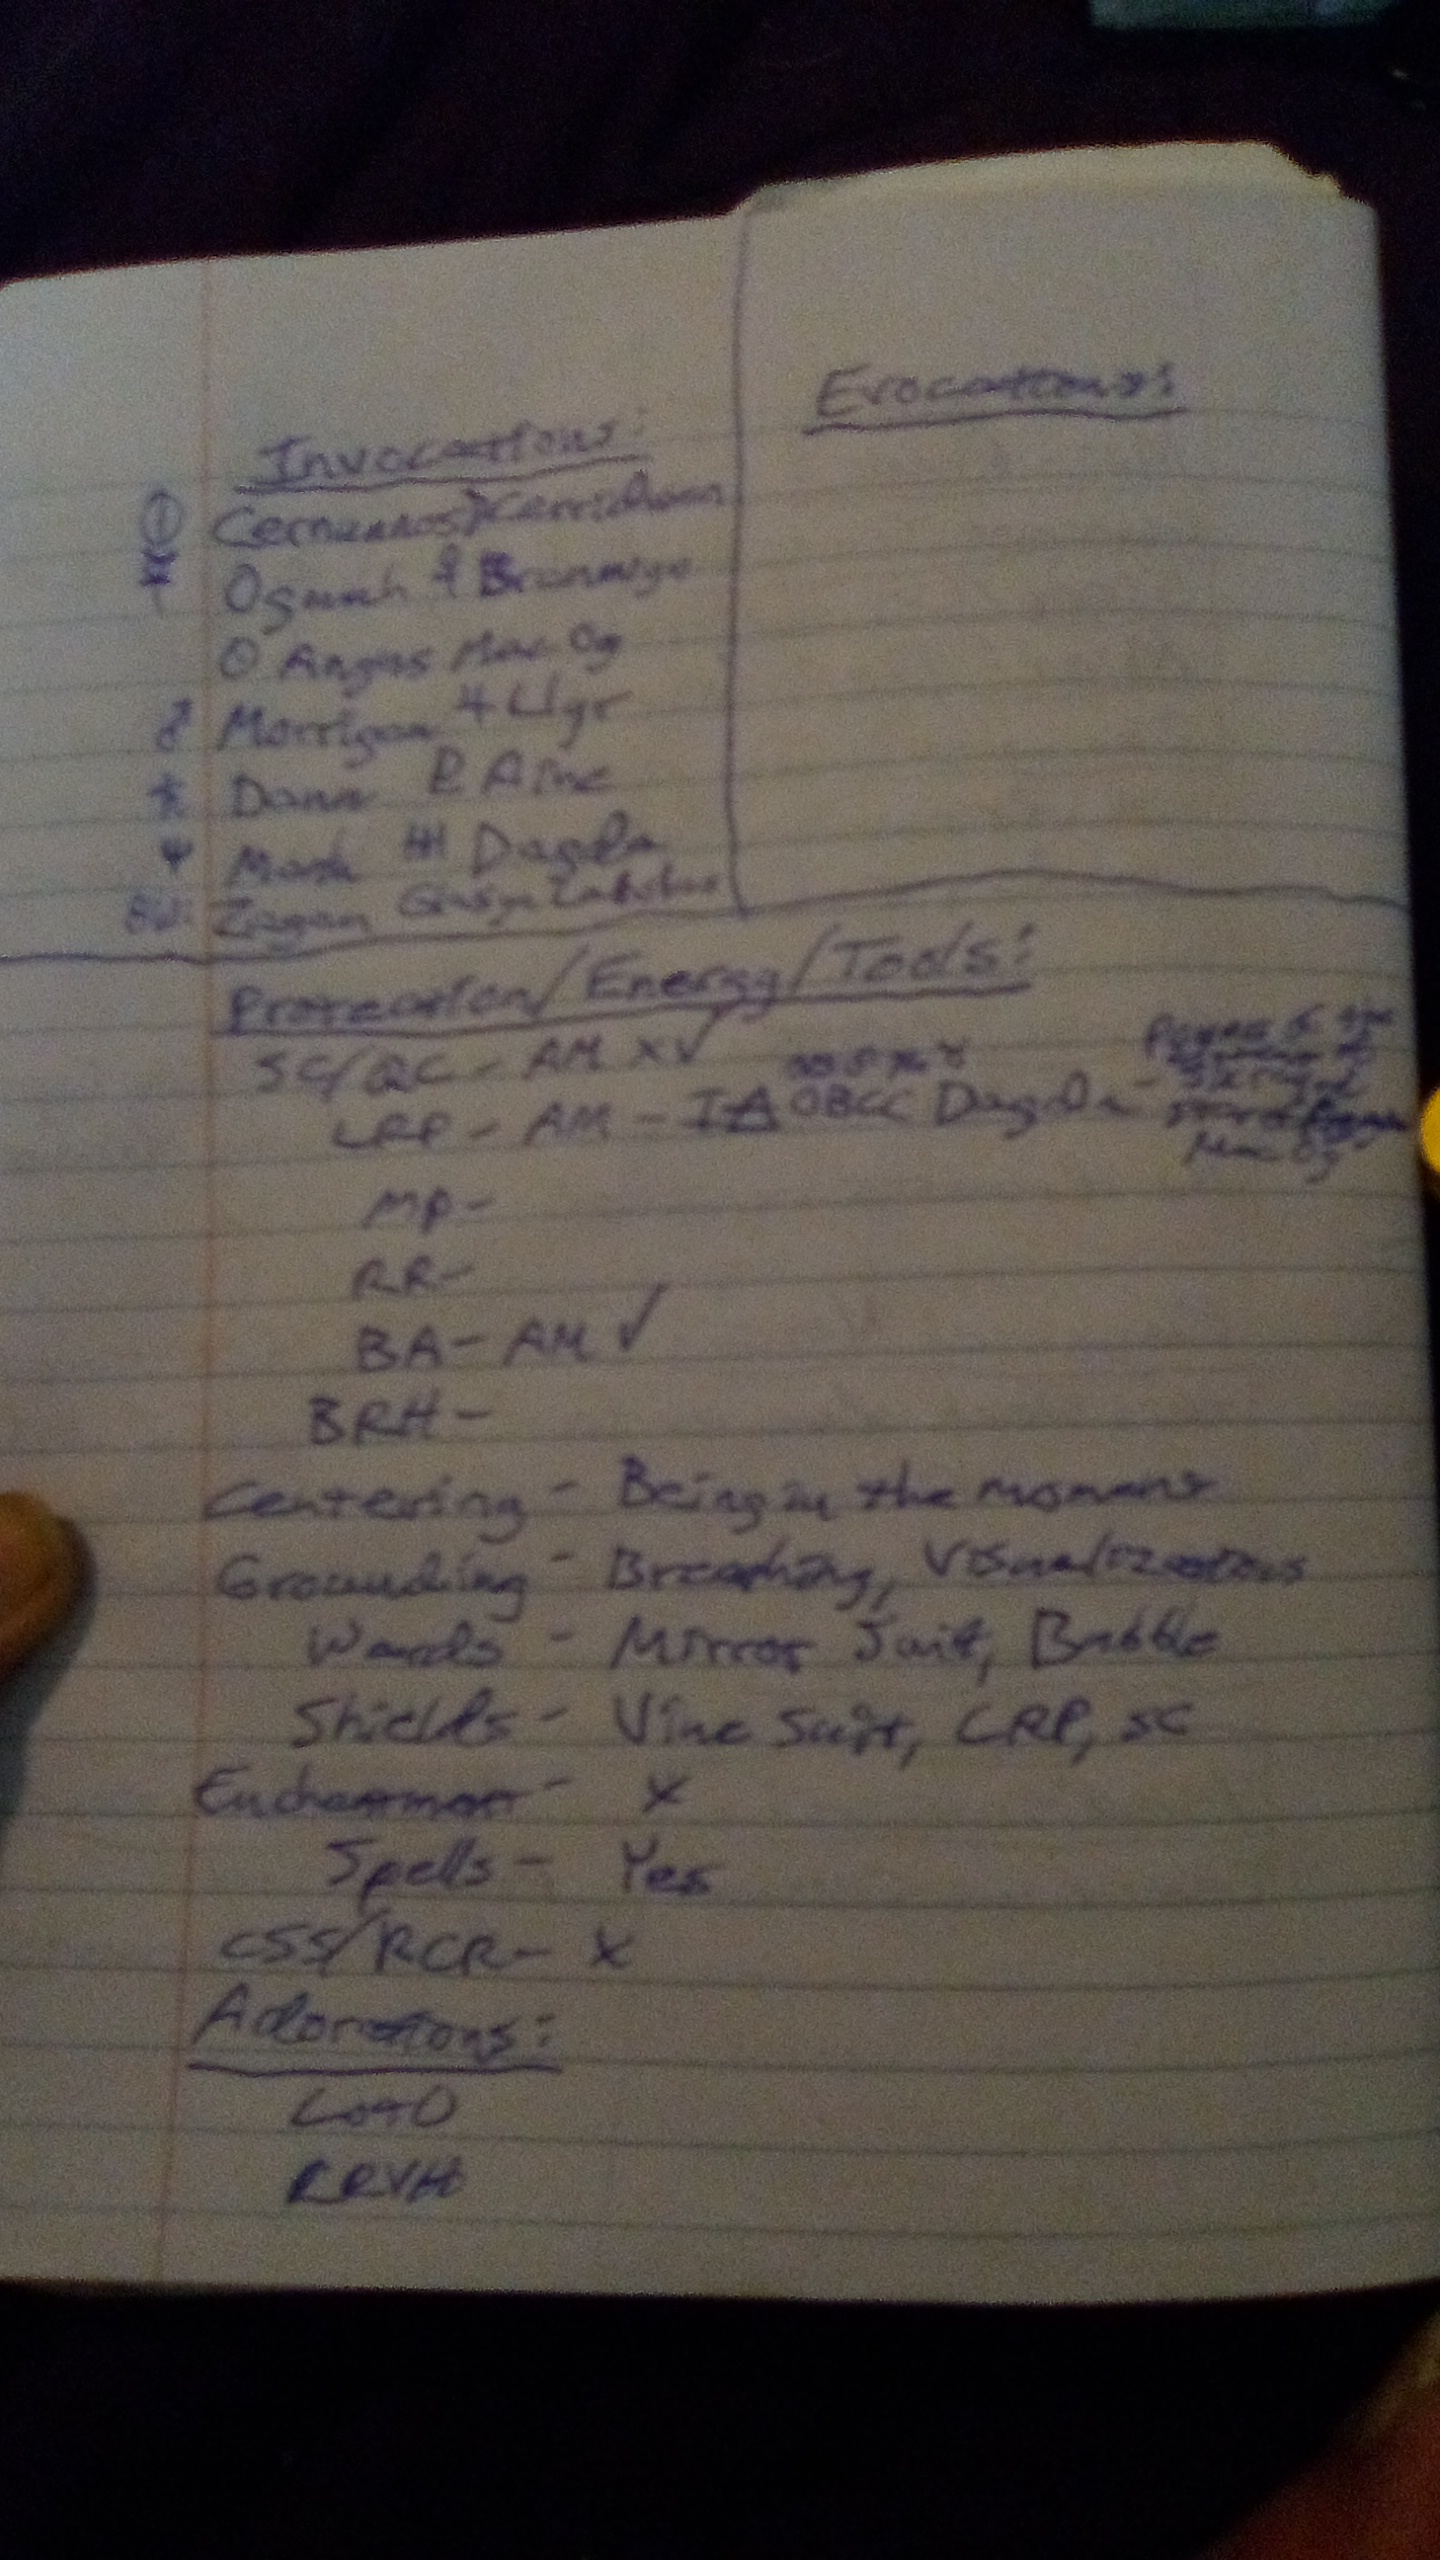 Invocations:
Evocations:
Cernunnos Kerridwen
Ogmah & Branwyn
☉ Angus Mac Og
♂ Morrigan ♃ Llyr
Danu ♇ Aine
♆ Math Dagda
Zagan
Protection/Energy/Tools:
SC/QC - AM X✓
LRP - AM - OBCC Dagda -
Mac Og
MP-
RR-
BA- AM ✓
BRH -
Centering - Being in the moment
Grounding - Breathing, Visualizations
Wards - Mirror Suit, Bubble
Shields - Vine Suit, LRP, SC
Enchantment - X
Spells - Yes
CSS/RCR- X
Adorations:
LotO
RRVH